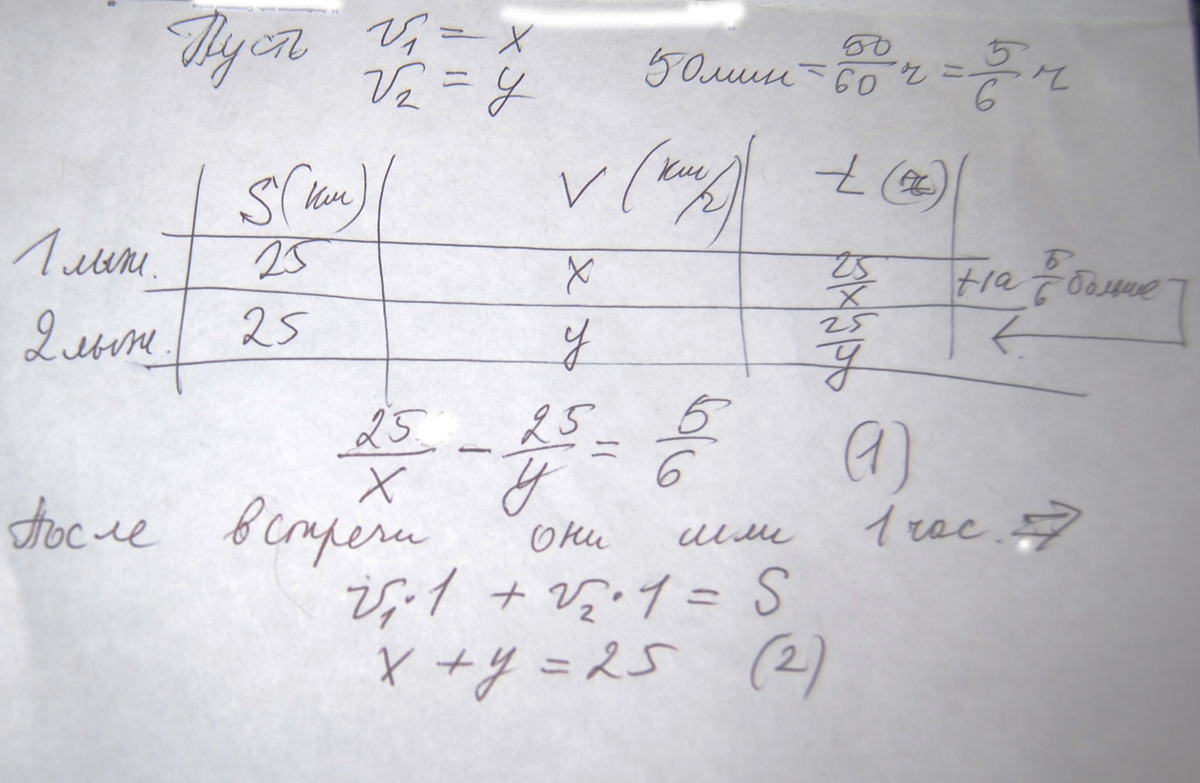 Пусть v₁ = x
v₂ = y
50мин = 50/60 ч = 5/6 ч
S(км) V (км/ч) t (ч)
1 лыж. 25 x 25/x на 5/6 больше
2 лыж. 25 y 25/y
25/x - 25/y = 5/6 (1)
После встречи они шли 1 час. ⇒
v₁·1 + v₂·1 = S
x + y = 25 (2)